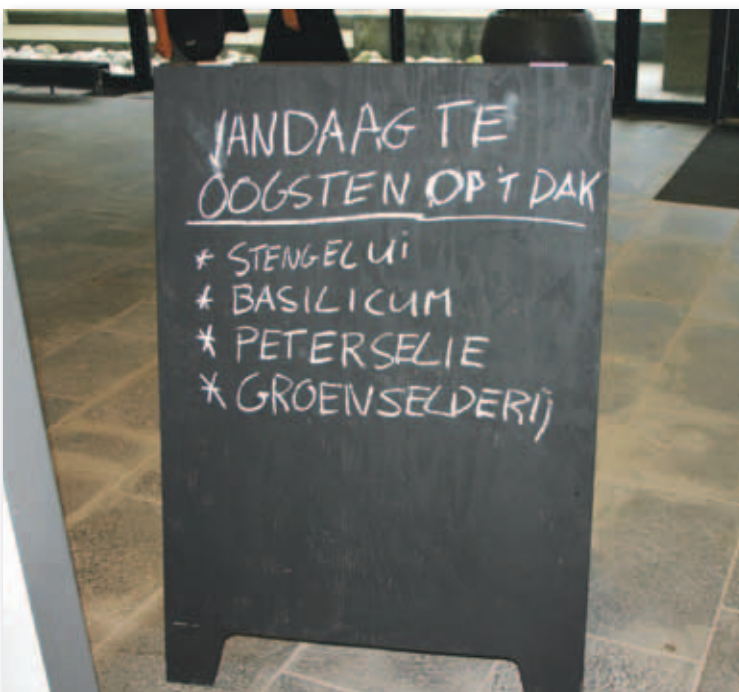 VANDAAG TE
OOGSTEN OP 'T DAK
* STENGELUI
* BASILICUM
* PETERSELIE
* GROENSELDERIJ